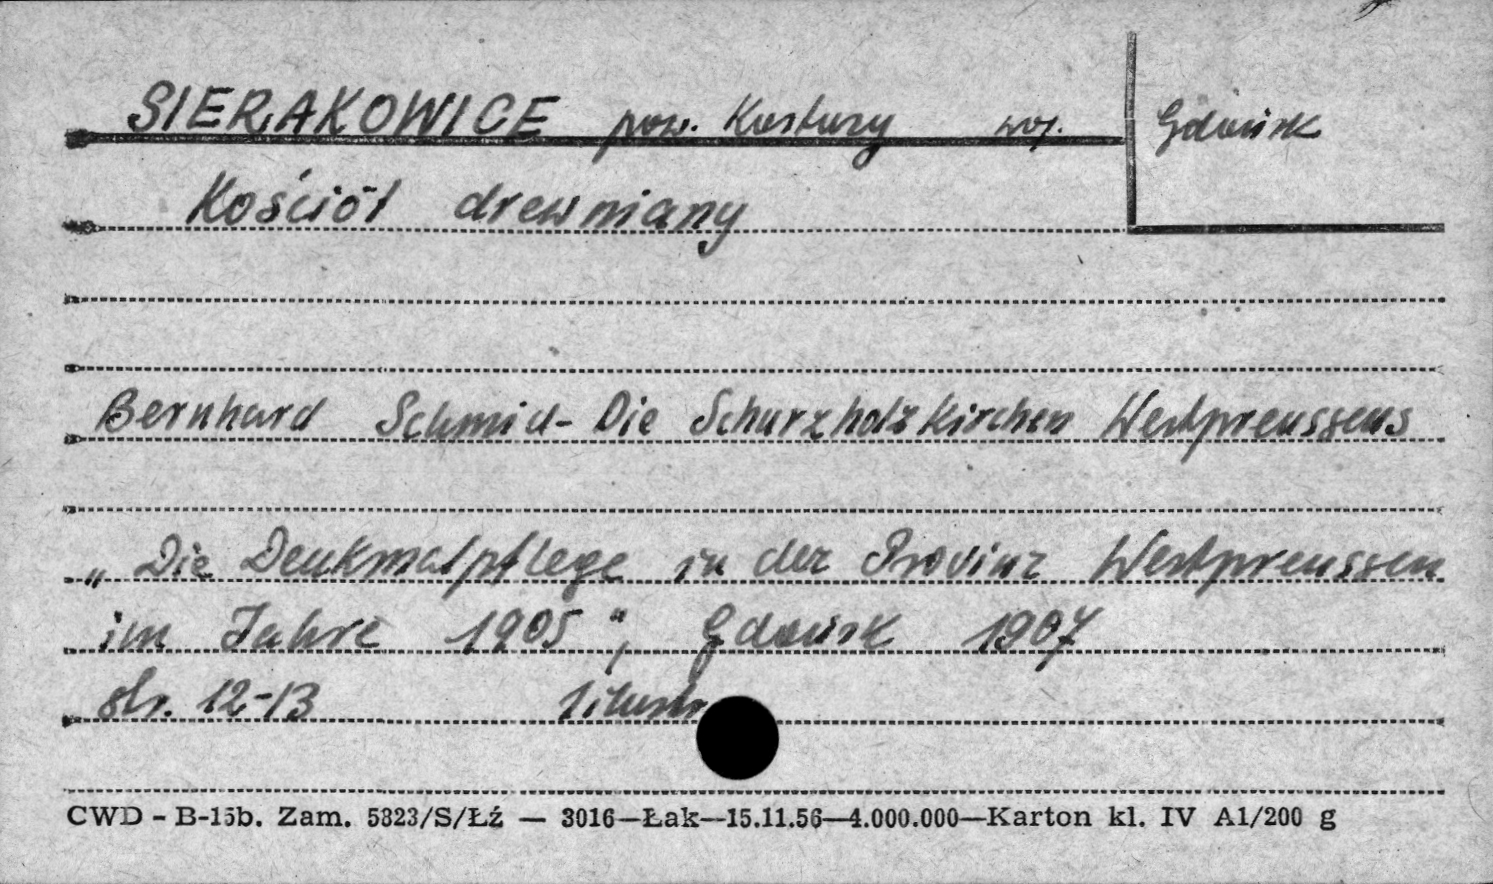 SIERAKOWICE pow. Kartuzy woj. Gdańsk
Kościół drewniany
Bernhard Schmid - Die Schurzholzkirchen Westpreussens
„Die Denkmalpflege in der Provinz Westpreussen
im Jahre 1905", Gdańsk 1907
str. 12-13 ilustr
CWD - B-15b. Zam. 5823/S/Łź — 3016—Łak—15.11.56—4.000.000—Karton kl. IV A1/200 g